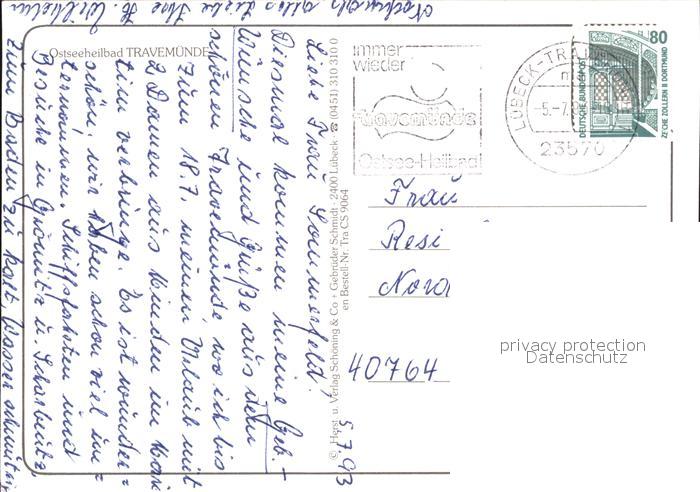 Ostseeheilbad TRAVEMÜNDE
5.7.93
Liebe Frau Sommerfeld!
Diesmal kommen meine Geb.-
Wünsche und Grüße aus dem
schönen Travemünde wo ich bis
zum 18.7. meinen Urlaub mit
2 Damen aus Minden im
tim verbringe. Es ist wunder=
schön. wir haben schon viel un=
ternommen. Schiffsfahrten und
Besuche in Grömitz u. Scharbeutz,
zum Baden zu kalt, Wasser
Nochmals alles Liebe Ihre H. Wilhelm
© Herst. u. Verlag Schöning & Co + Gebrüder Schmidt · 2400 Lübeck · ☎ (0451) 310 310 0
en Bestell-Nr. Tra CS 9064
immer
wieder
Travemünde
Ostsee-Heilbad
LÜBECK-TRA
-5.-7.9
23570
80
DEUTSCHE BUNDESPOST
ZECHE ZOLLERN II DORTMUND
Frau
Resi
Nord
40764
privacy protection
Datenschutz